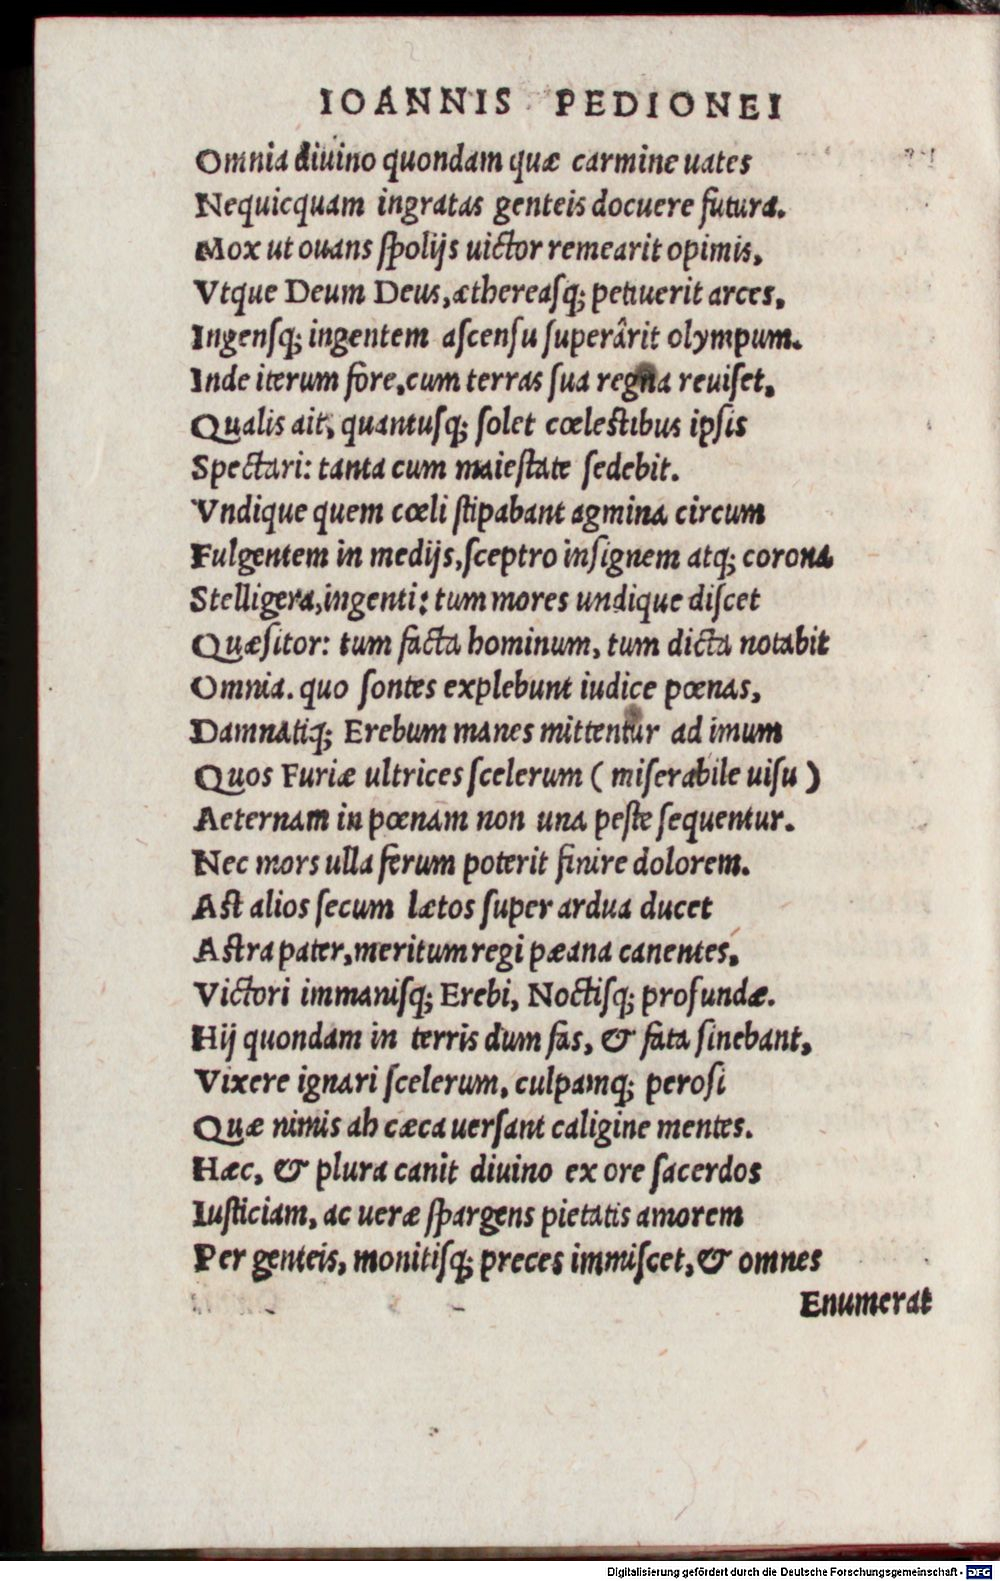 IOANNIS PEDIONEI
Omnia diuino quondam quæ carmine uates
Nequicquam ingratas genteis docuere futura.
Mox ut ouans ſpolijs uictor remearit opimis,
Vtque Deum Deus, æthereaſq; petiuerit arces,
Ingenſq; ingentem aſcenſu ſuperârit olympum.
Inde iterum fore, cum terras ſua regna reuiſet,
Qualis ait, quantuſq; ſolet cœleſtibus ipſis
Spectari: tanta cum maieſtate ſedebit.
Vndique quem cœli ſtipabant agmina circum
Fulgentem in medijs, ſceptro inſignem atq; corona
Stelligera, ingenti: tum mores undique diſcet
Quæſitor: tum facta hominum, tum dicta notabit
Omnia. quo ſontes explebunt iudice pœnas,
Damnatiq; Erebum manes mittentur ad imum
Quos Furiæ ultrices ſcelerum ( miſerabile uiſu )
Aeternam in pœnam non una peſte ſequentur.
Nec mors ulla ferum poterit finire dolorem.
Aſt alios ſecum lætos ſuper ardua ducet
Aſtra pater, meritum regi pæana canentes,
Victori immaniſq; Erebi, Noctiſq; profundæ.
Hij quondam in terris dum fas, & fata ſinebant,
Vixere ignari ſcelerum, culpamq; peroſi
Quæ nimis ah cæca uerſant caligine mentes.
Hæc, & plura canit diuino ex ore ſacerdos
Iuſticiam, ac ueræ ſpargens pietatis amorem
Per genteis, monitiſq; preces immiſcet, & omnes
Enumerat
Digitalisierung gefördert durch die Deutsche Forschungsgemeinschaft - DFG